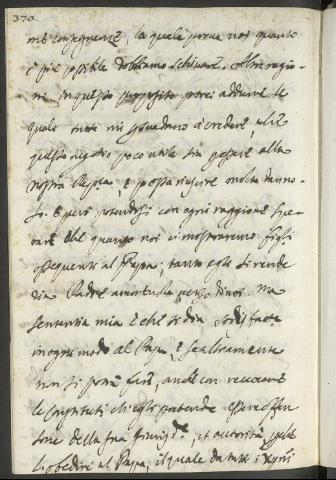 370.
me conseguenze, la quale prova noi quanto
è più possibile dobbiamo schivare. Altre ragio-
ni in questo proposito potrei addurre le
quali tutte mi persuadono à credere, che
questo negotio poco utile sia essere alla
nostra Relig.e, e possa riuscire molto danno-
so. E però potendosi con ogni raggione spe-
rare che quanto noi ci mostraremo figli
ossequenti al Papa; tanto egli si rende
rà Padre amorevole verso di noi. Ma
sentenza mia è che si dia sodisfatt.e
in ogni modo al Papa, e se altramente
non si potrà fare, anche con revocare
le Constituti.i ch'egli pretende essere offen-
sive della sua Giurisd.e, et autorità
l'obedire al Papa, il quale da tutti i